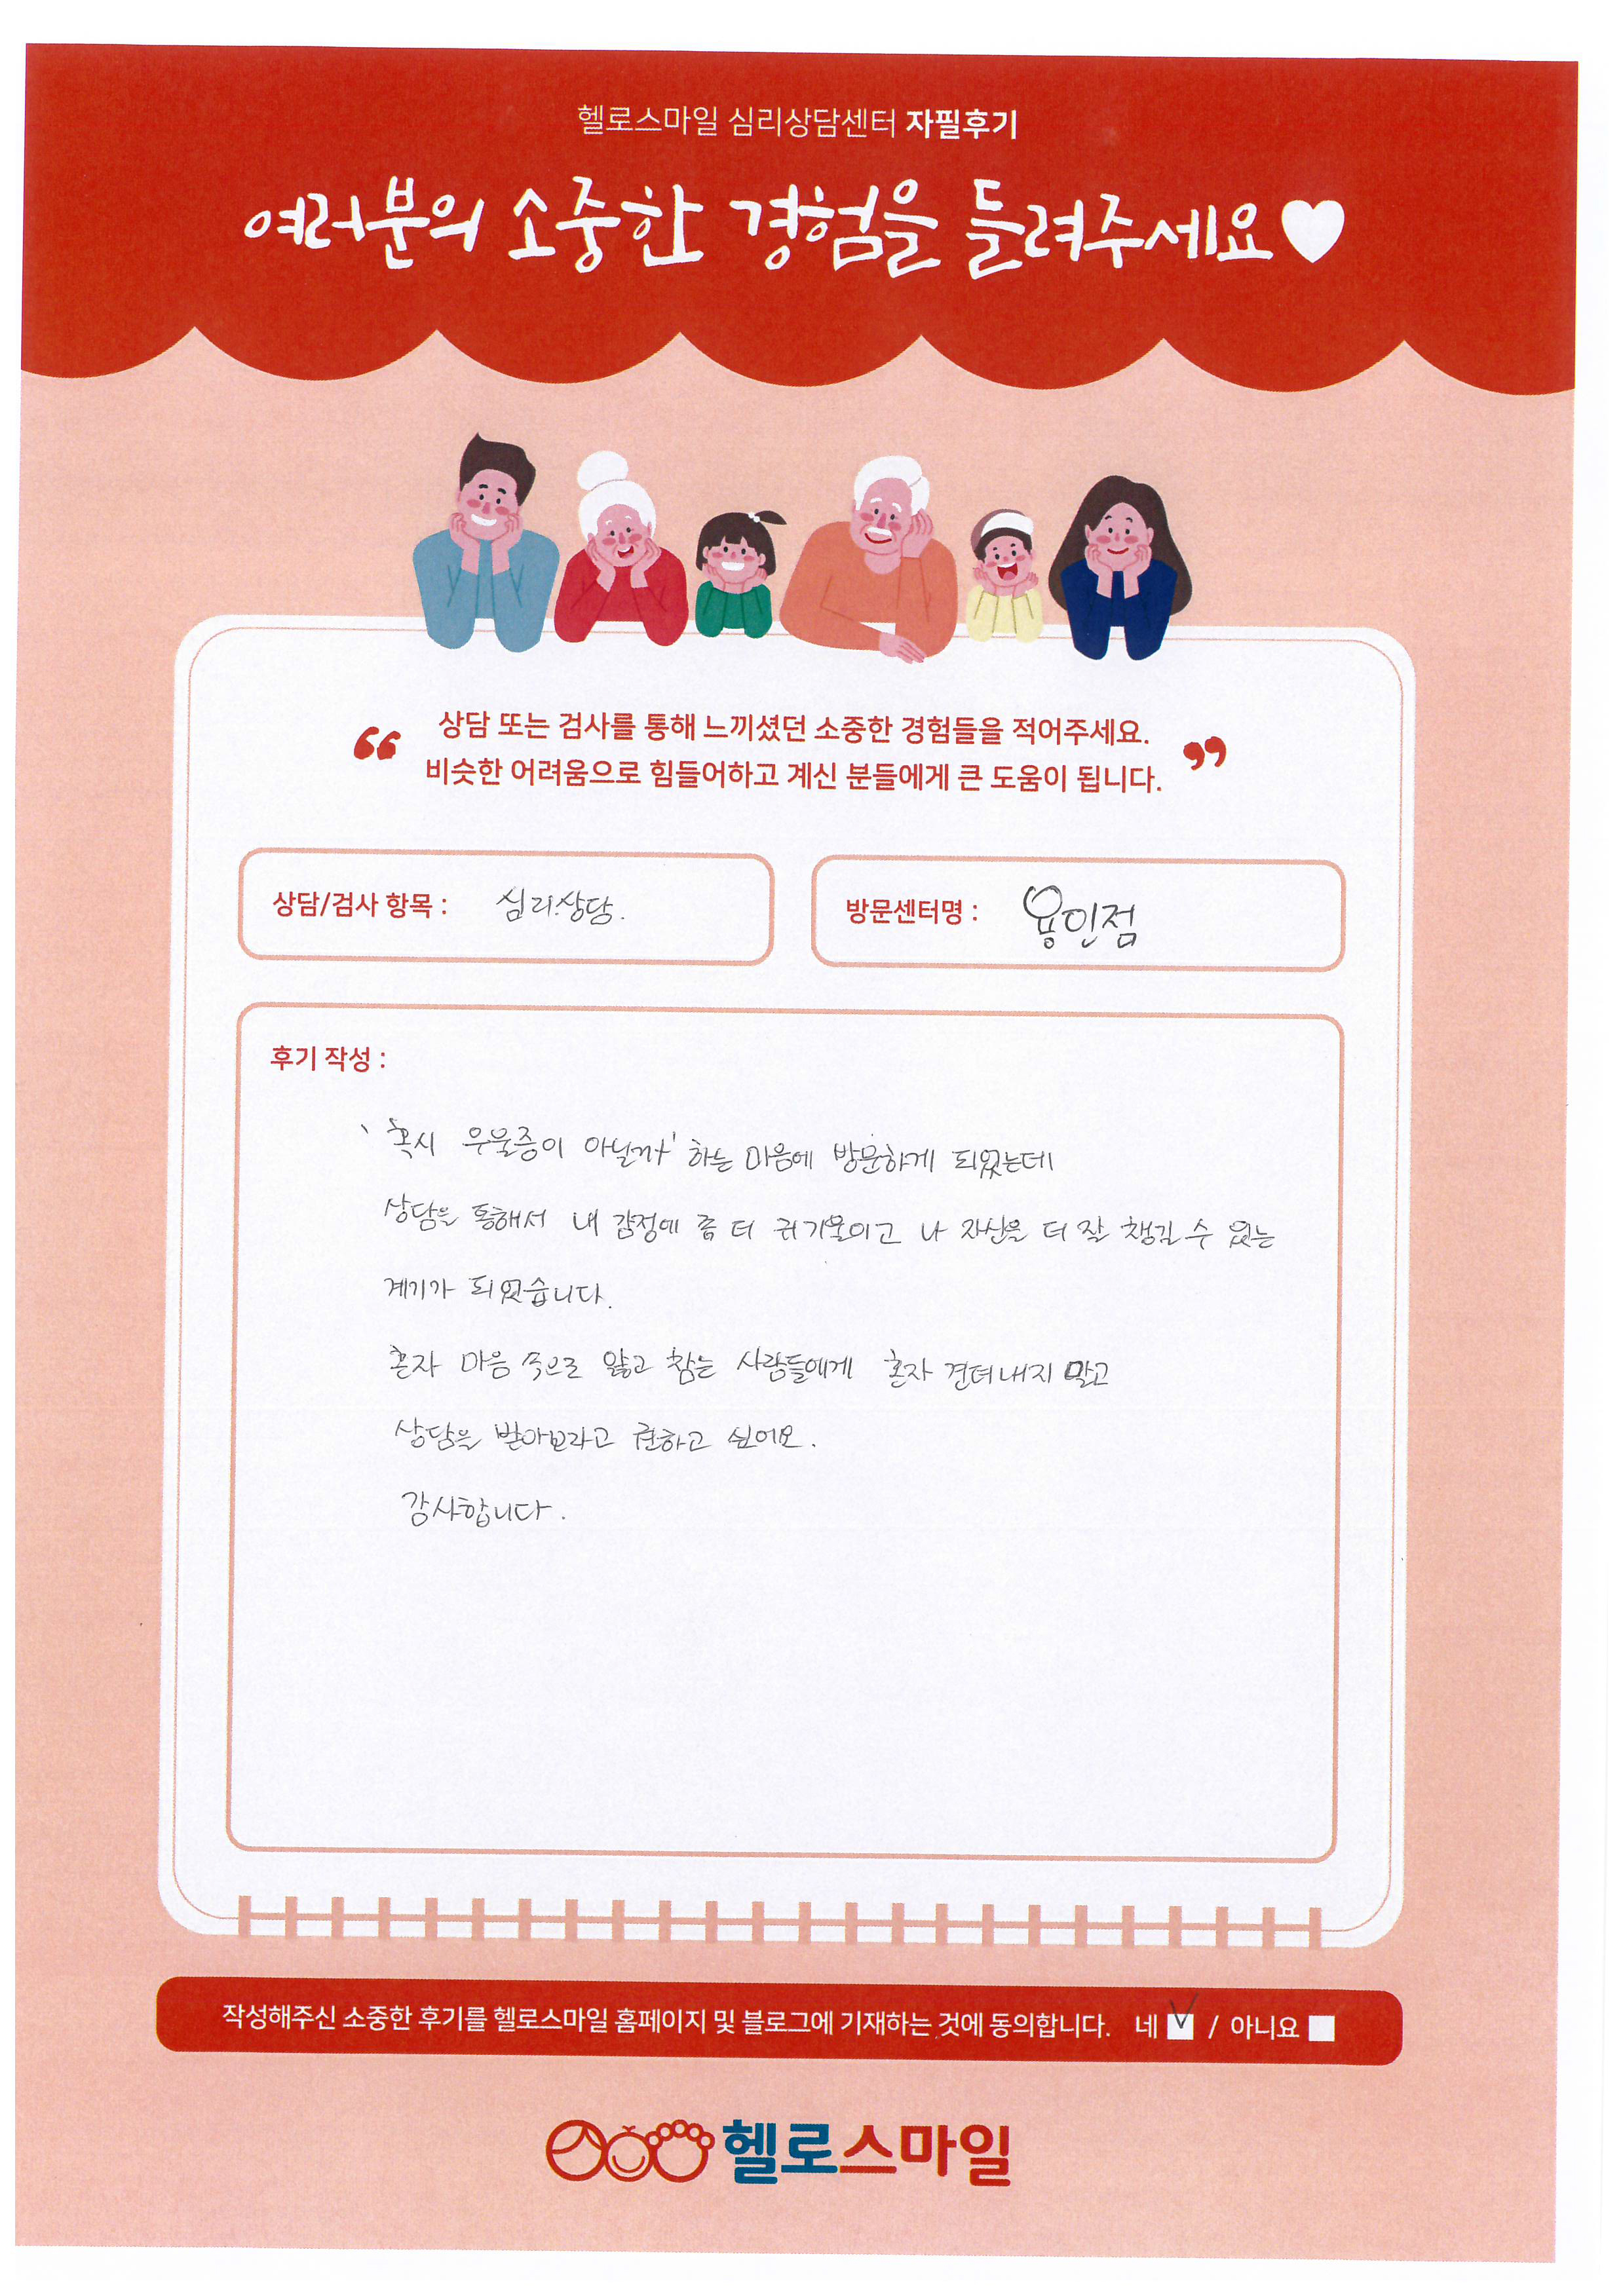 헬로스마일 심리상담센터 자필후기
여러분의 소중한 경험을 들려주세요♥
“ 상담 또는 검사를 통해 느끼셨던 소중한 경험들을 적어주세요.
비슷한 어려움으로 힘들어하고 계신 분들에게 큰 도움이 됩니다. ”
상담/검사 항목 : 심리상담.
방문센터명 : 용인점
후기 작성 :
'혹시 우울증이 아닐까' 하는 마음에 방문하게 되었는데
상담을 통해서 내 감정에 좀 더 귀 기울이고 나 자신을 더 잘 챙길 수 있는
계기가 되었습니다.
혼자 마음 속으로 앓고 참는 사람들에게 혼자 견뎌내지 말고
상담을 받아보라고 권하고 싶어요.
감사합니다.
작성해주신 소중한 후기를 헬로스마일 홈페이지 및 블로그에 기재하는 것에 동의합니다. 네 ☑ / 아니요 ☐
헬로스마일